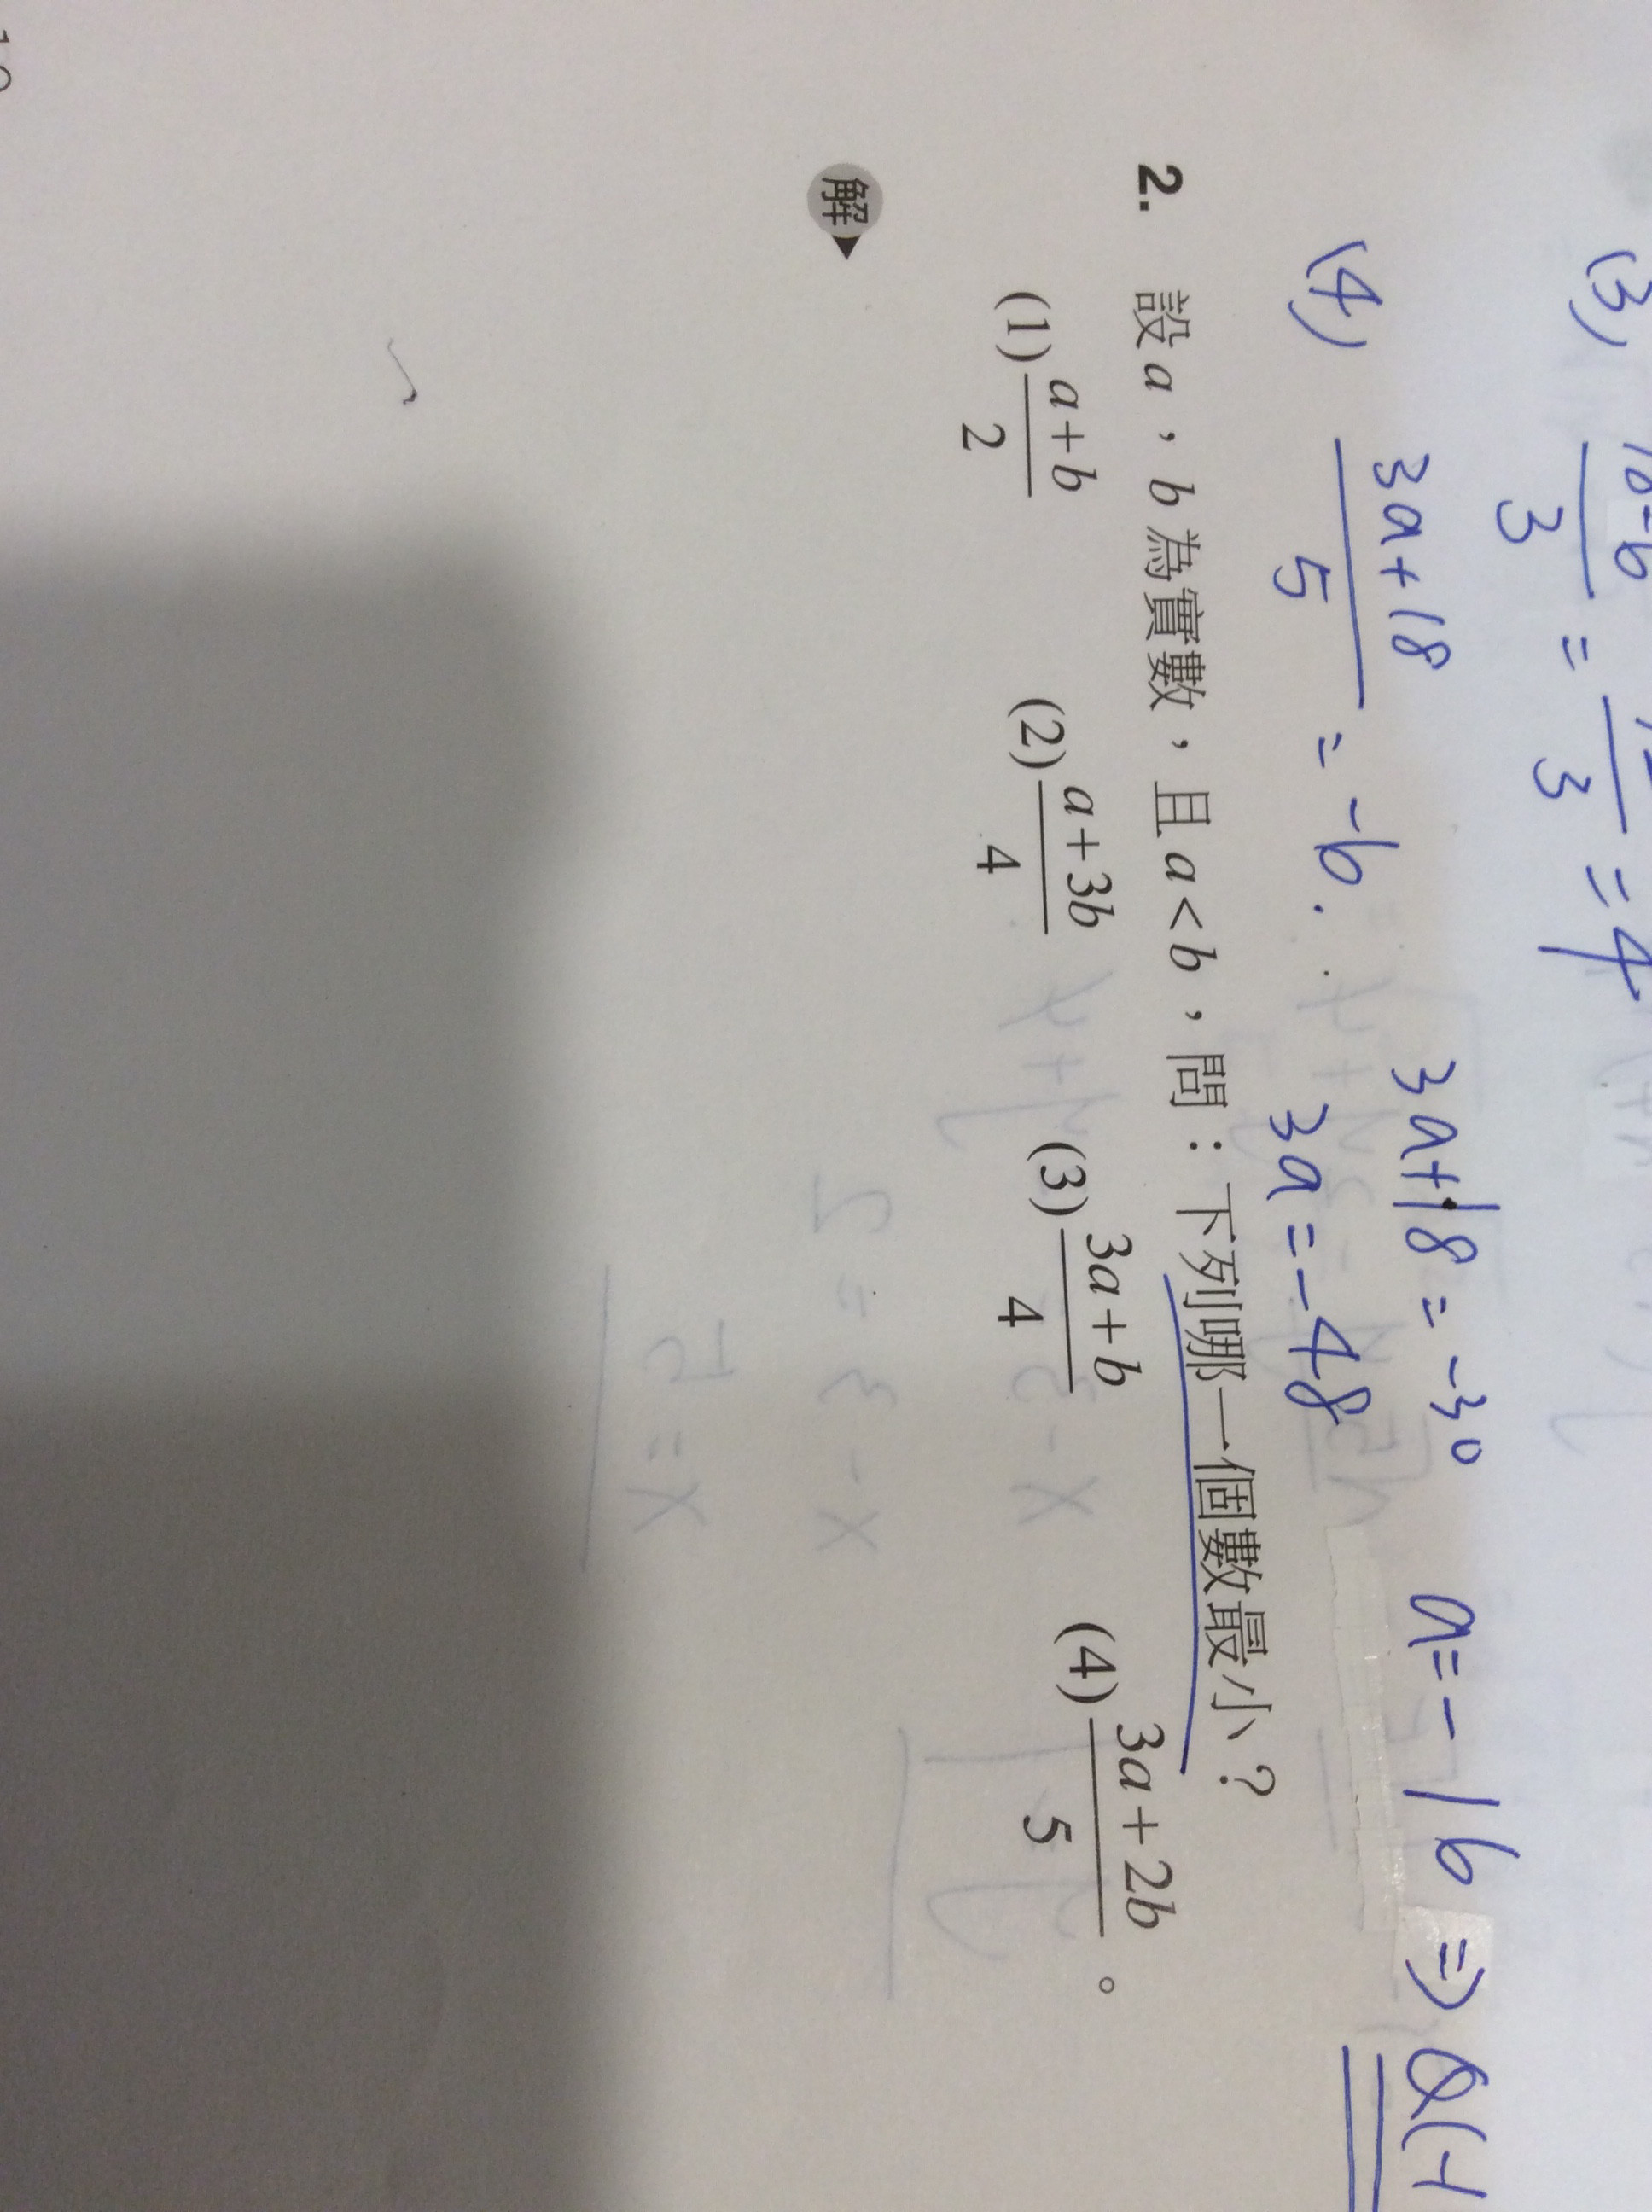 (3) 10-b/3 = /3 = 4
(4) 3a+18/5 = -6. 3a+18 = -30 a = -16 ⇒ Q(-1
3a = -48
2. 設a,b為實數,且a<b,問:下列哪一個數最小?
(1) a+b/2 (2) a+3b/4 (3) 3a+b/4 (4) 3a+2b/5 。
解